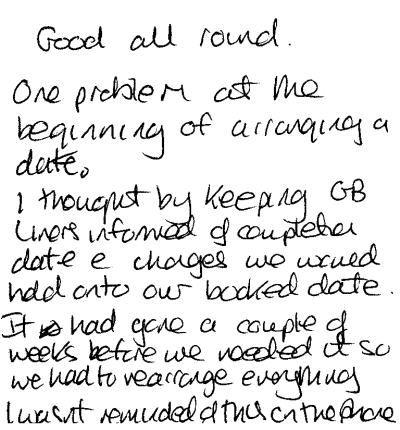 Good all round.
One problem at the
beginning of arranging a
date.
I thought by keeping GB
Liners informed of completion
date e changes we would
hold onto our booked date.
It had gone a couple of
weeks before we needed it so
we had to rearrange everything
I wasn't reminded of this on the phone